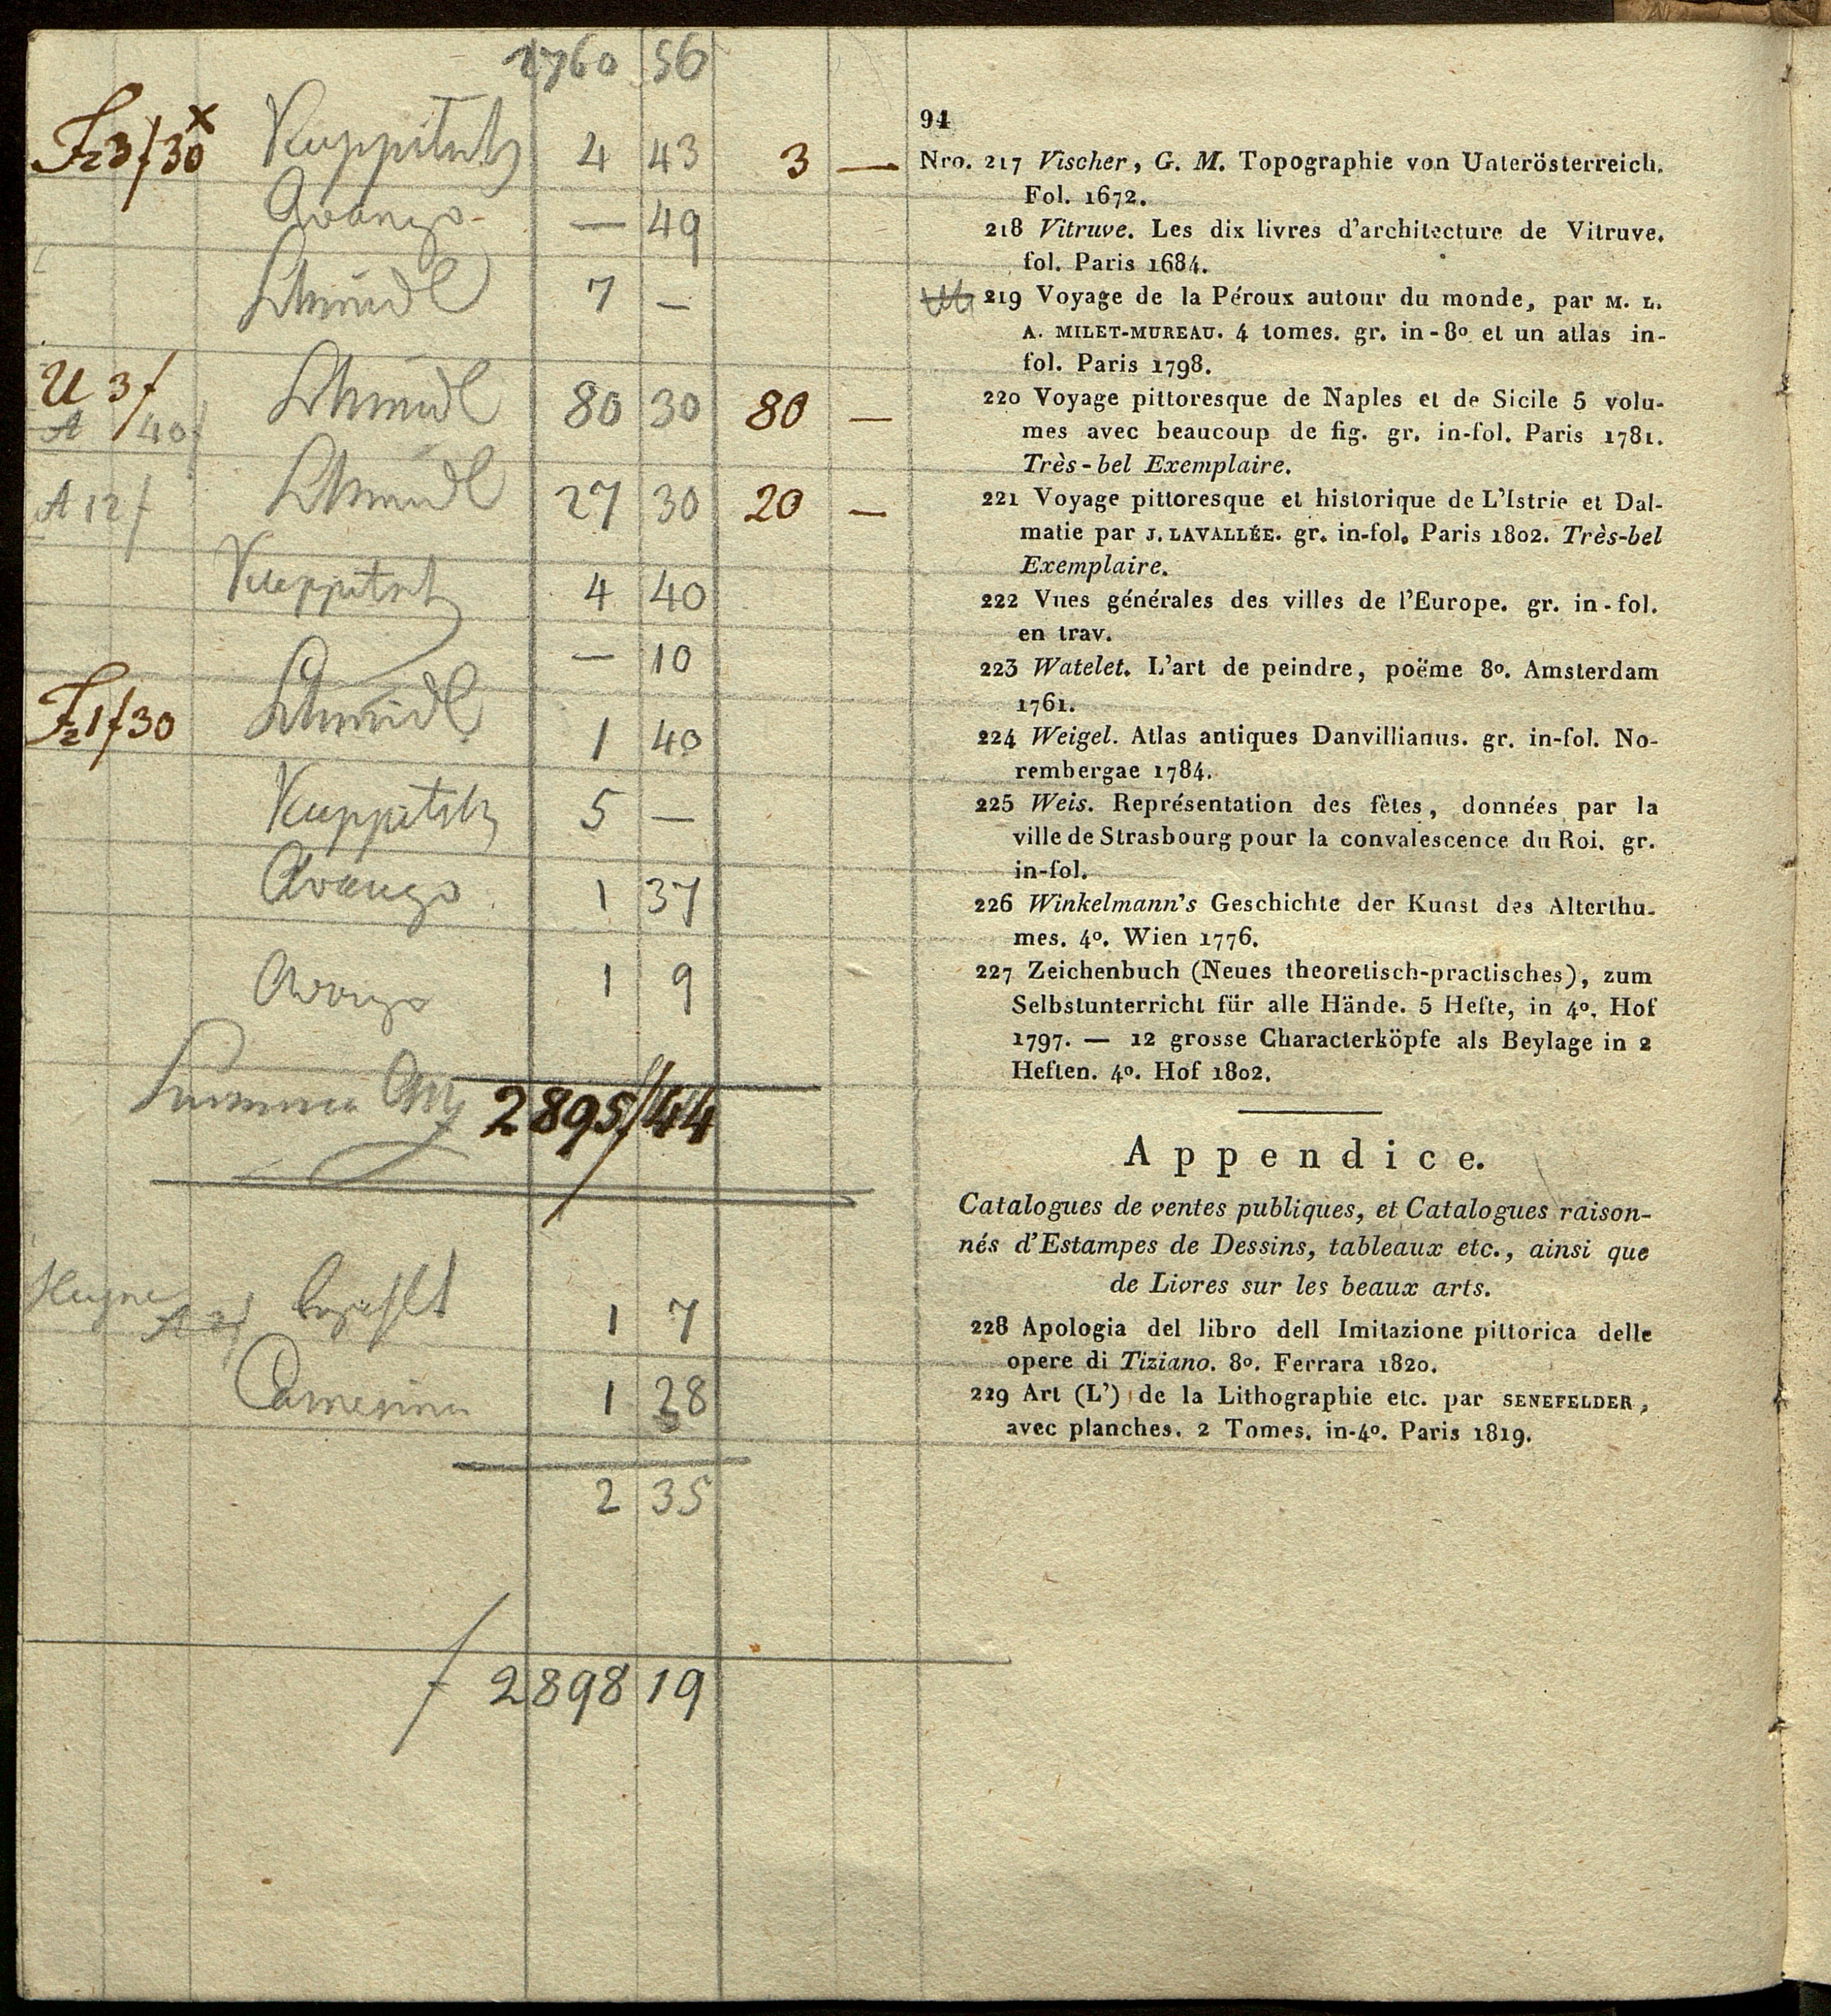 2760 56
Fz 3f 30x Kuppitsch 4 43 3 —
— 49
Schmidl 7 —
U 3f
A 40f Schmidl 80 30 80 —
A 12f Schmidl 27 30 20 —
Kuppitsch 4 40
— 10
Fz 1f 30 Schmidl 1 40
Kuppitsch 5 —
1 37
1 9
Summa 2895f 44
bezahlt 1 7
Camesina 1 28
2 35
f 2898 19
94
Nro. 217 Vischer, G. M. Topographie von Unterösterreich.
Fol. 1672.
218 Vitruve. Les dix livres d'architecture de Vitruve.
fol. Paris 1684.
219 Voyage de la Péroux autour du monde, par M. L.
A. MILET-MUREAU. 4 tomes. gr. in-8º et un atlas in-
fol. Paris 1798.
220 Voyage pittoresque de Naples et de Sicile 5 volu-
mes avec beaucoup de fig. gr. in-fol. Paris 1781.
Très-bel Exemplaire.
221 Voyage pittoresque et historique de L'Istrie et Dal-
matie par J. LAVALLÉE. gr. in-fol. Paris 1802. Très-bel
Exemplaire.
222 Vues générales des villes de l'Europe. gr. in-fol.
en trav.
223 Watelet. L'art de peindre, poëme 8º. Amsterdam
1761.
224 Weigel. Atlas antiques Danvillianus. gr. in-fol. No-
rembergae 1784.
225 Weis. Représentation des fêtes, données par la
ville de Strasbourg pour la convalescence du Roi. gr.
in-fol.
226 Winkelmann's Geschichte der Kunst des Alterthu-
mes. 4º. Wien 1776.
227 Zeichenbuch (Neues theoretisch-practisches), zum
Selbstunterricht für alle Hände. 5 Hefte, in 4º. Hof
1797. — 12 grosse Characterköpfe als Beylage in 2
Heften. 4º. Hof 1802.
Appendice.
Catalogues de ventes publiques, et Catalogues raison-
nés d'Estampes de Dessins, tableaux etc., ainsi que
de Livres sur les beaux arts.
228 Apologia del libro dell Imitazione pittorica delle
opere di Tiziano. 8º. Ferrara 1820.
229 Art (L') de la Lithographie etc. par SENEFELDER,
avec planches. 2 Tomes. in-4º. Paris 1819.